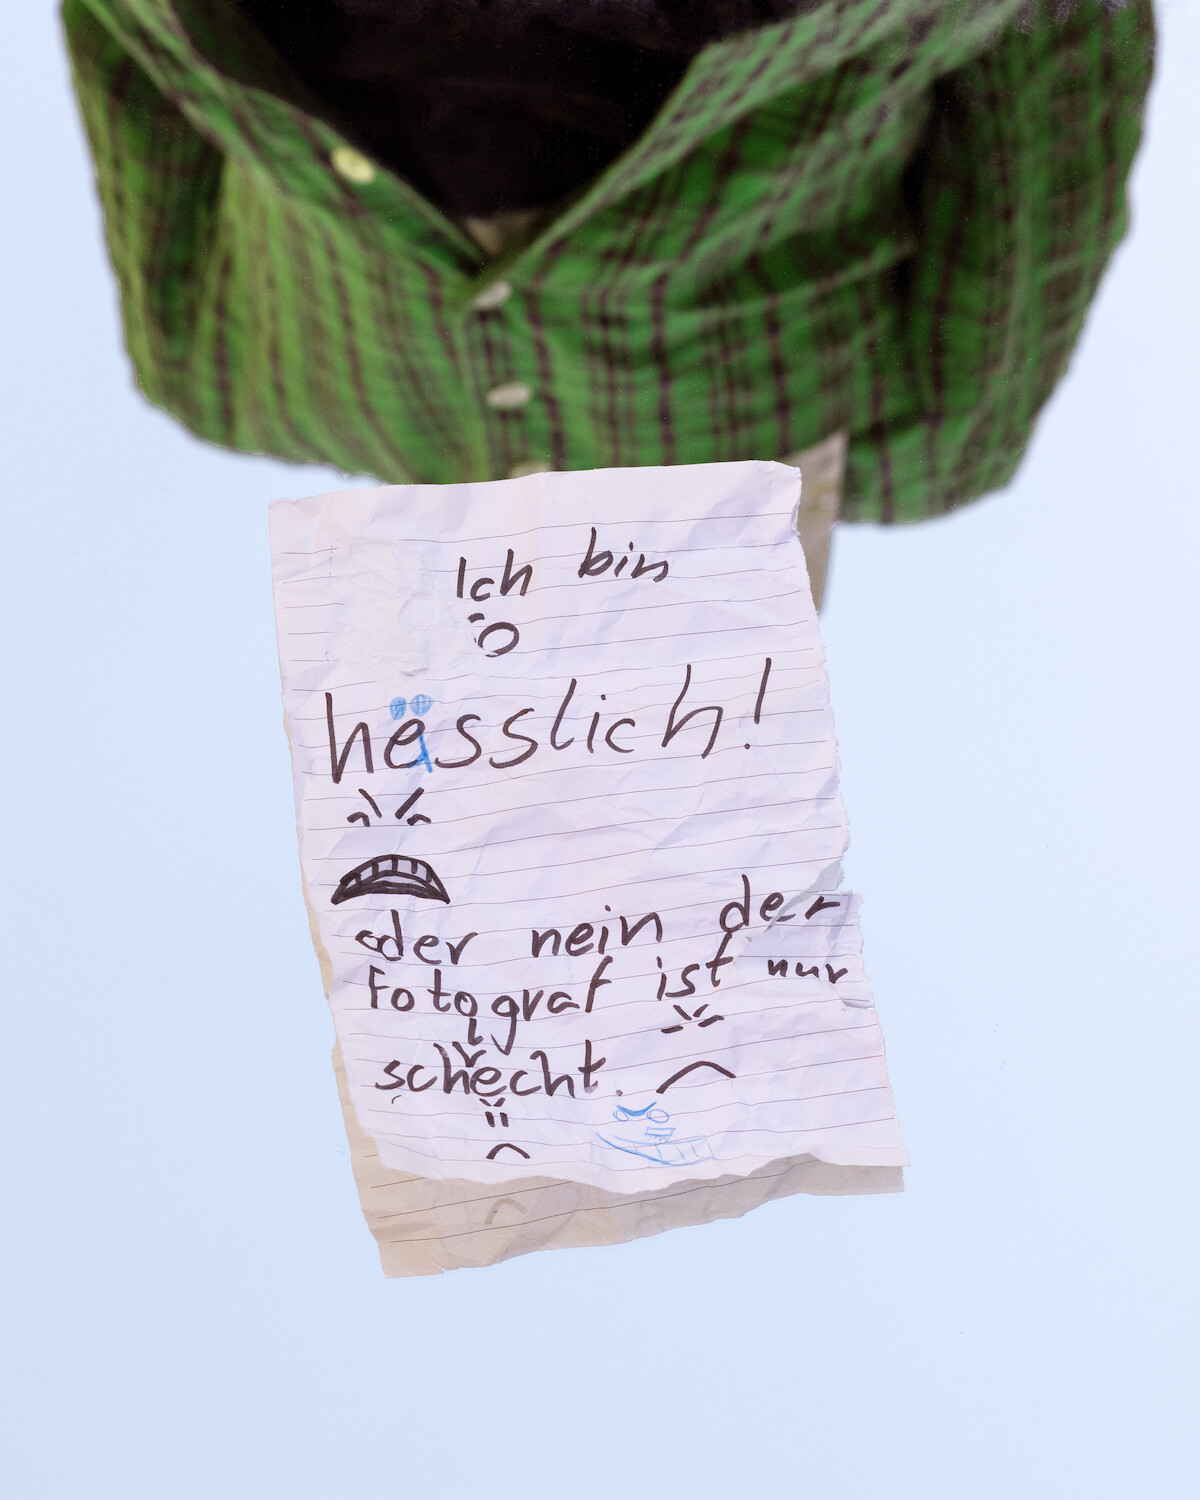 Ich bin
hässlich!
oder nein der
Fotograf ist nur
schlecht.